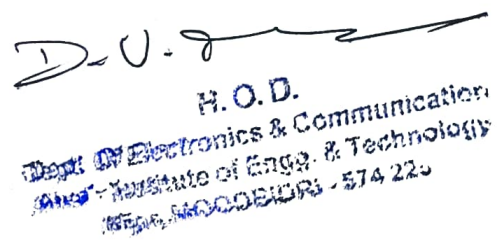 D.V.
H.O.D.
Dept. Of Electronics & Communication
Institute of Engg. & Technology
MOODBIDRI - 574 225